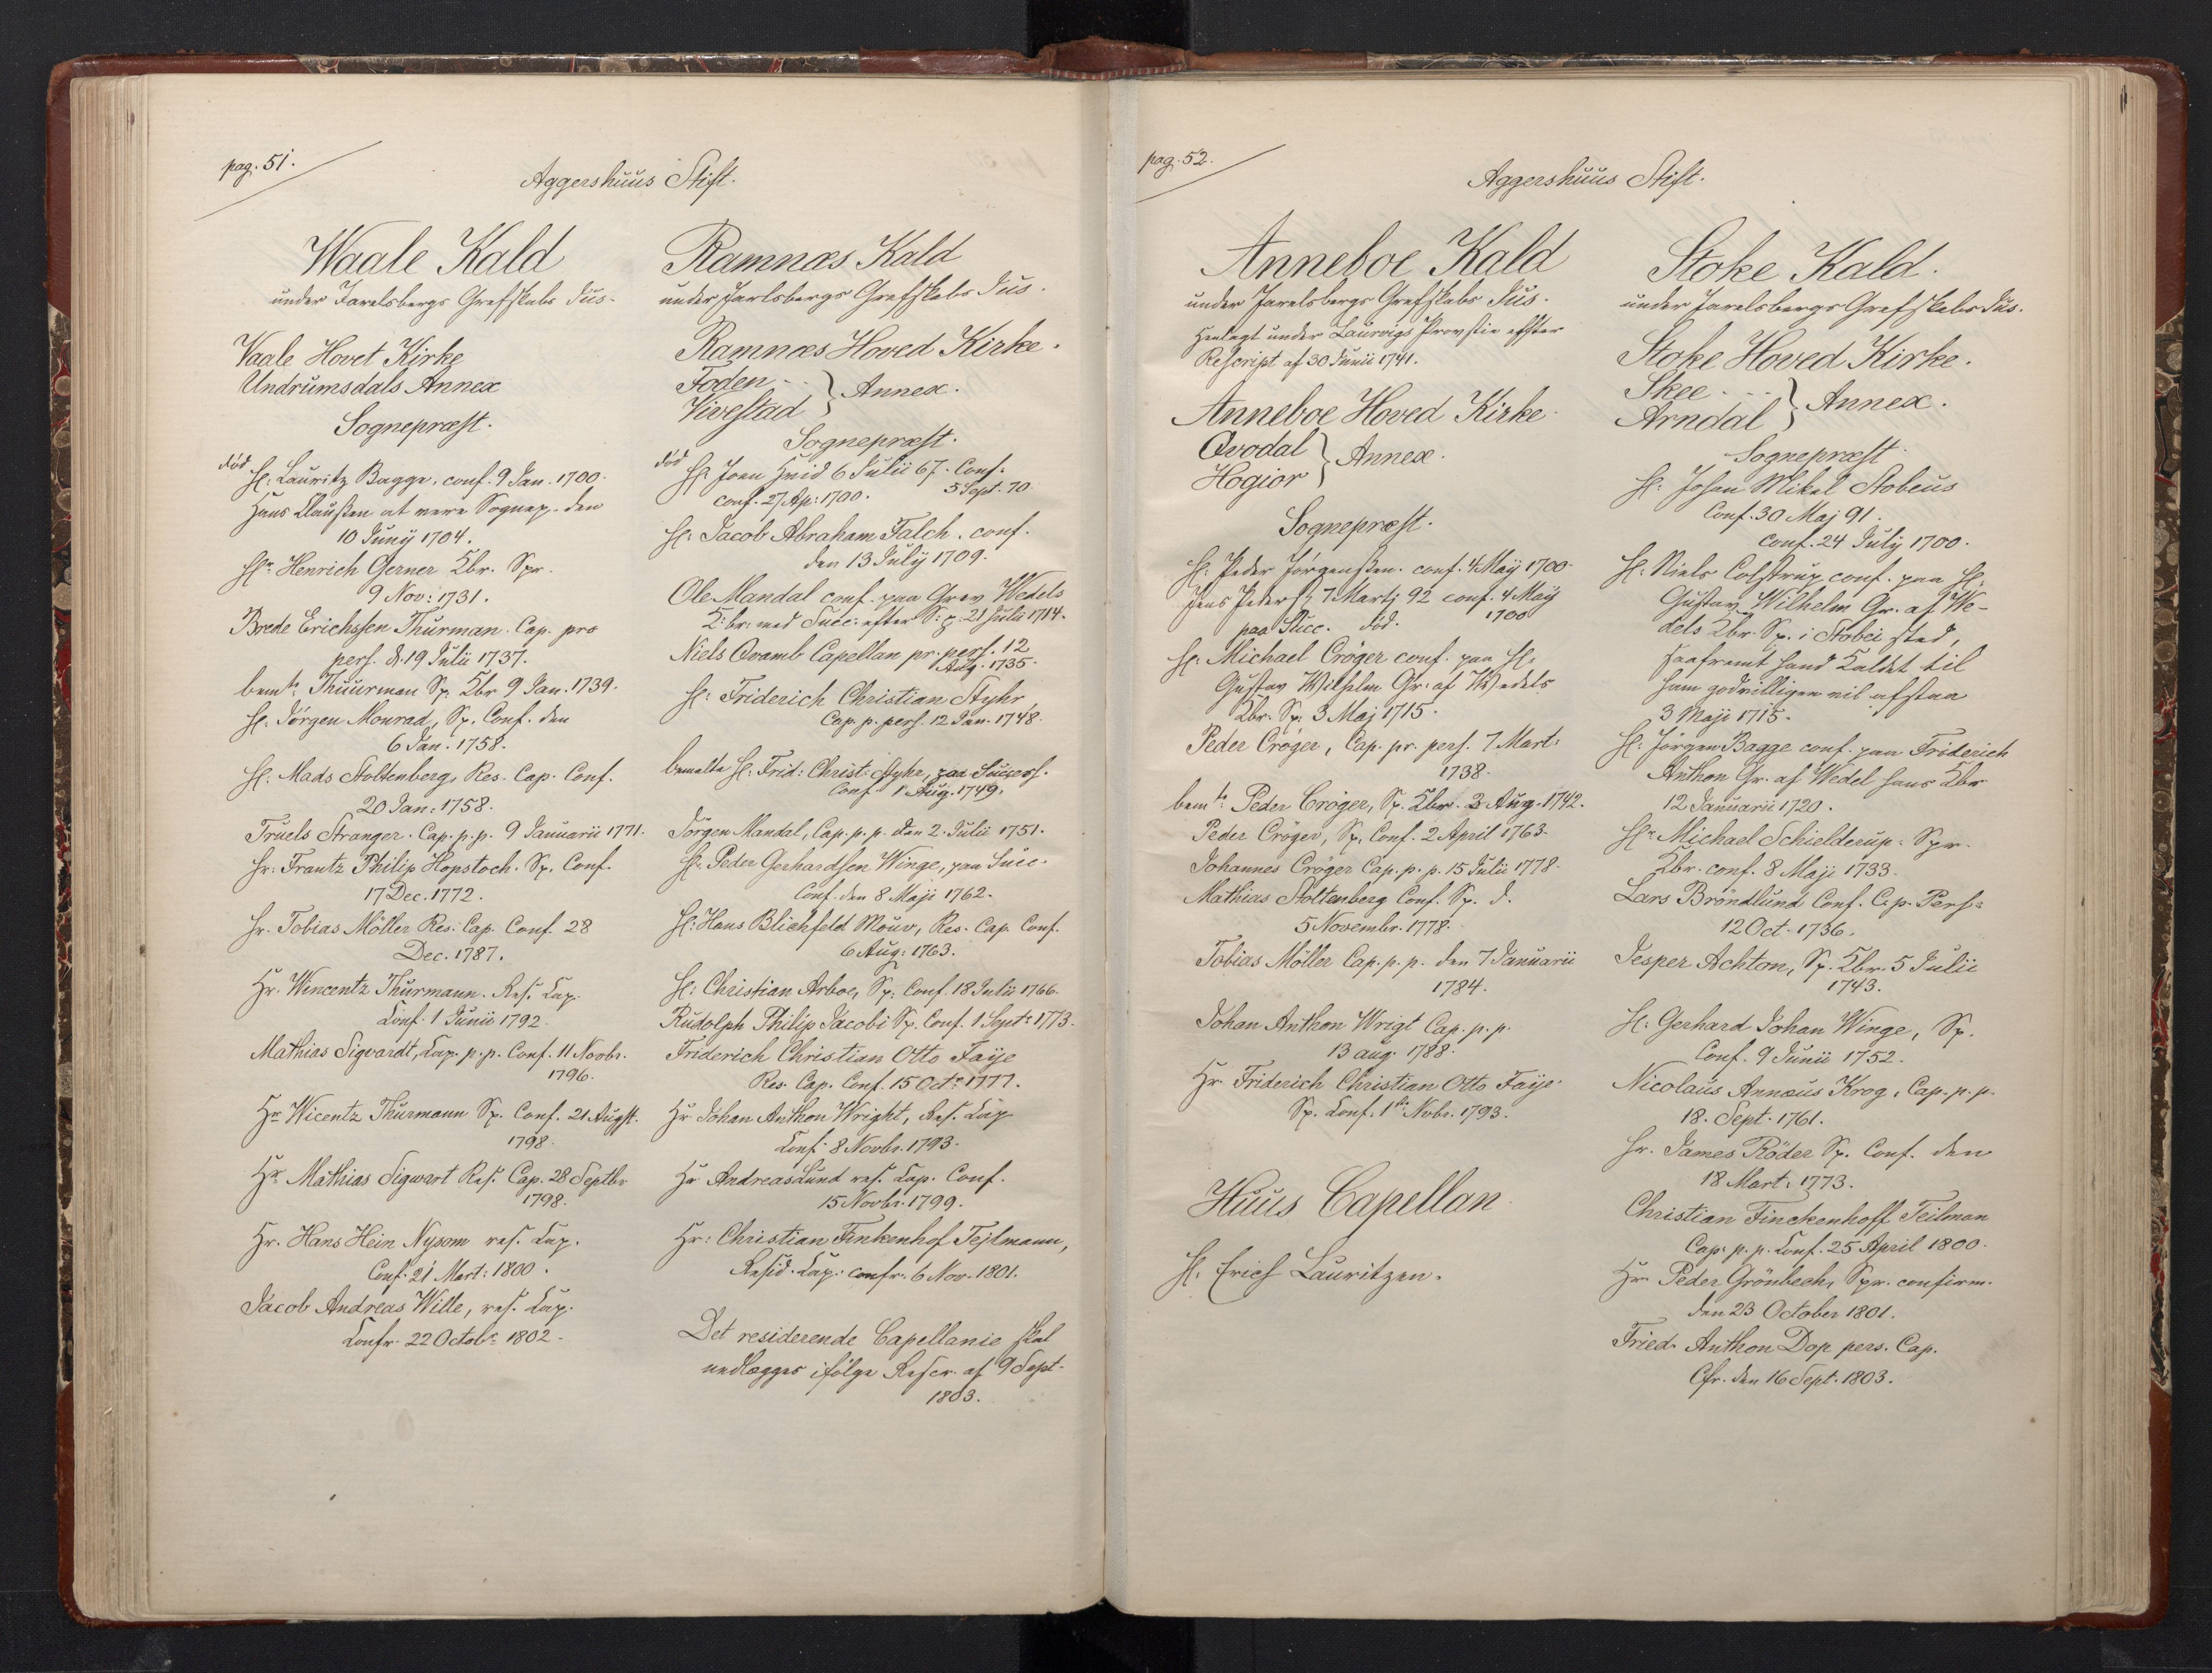 pag. 51.
Aggershuus Stift.
Waale Kald
under Jarelsbergs Grefskabs Jus.
Vaale Hovet Kirke
Undrumsdals Annex
Sognepræst.
død
Hl: Lauritz Bagge, conf. 9 Jan. 1700.
Hans Claussen at være Sognep. den
10 Junij 1704.
Hr. Henrich Gerner Kbr. Spr.
9 Nov: 1731.
Brede Erichssen Thurman. Cap. pro
pers. d. 19 Julii 1737.
bemte. Thuurman Sp. Kbr 9 Jan. 1739.
Hl: Jörgen Monrad, Sp. Conf. den
6 Jan: 1758.
Hl: Mads Stoltenberg, Res. Cap. Conf.
20 Jan: 1758.
Truels Stranger. Cap. p. p. 9 Januarii 1771.
Hr: Frantz Philip Hopstoch. Sp. Conf.
17 Dec. 1772.
Hr. Tobias Möller Res: Cap. Conf. 28
Dec. 1787.
Hr. Wincentz Thurmann. Res. Cap.
Conf. 1 Junii 1792.
Mathias Sigvardt, Cap. p. p. Conf. 11 Novbr.
1796.
Hr Wicentz Thurmann Sp. Conf. 21 Augst.
1798.
Hr. Mathias Sigwart Res. Cap. 28 Septbr
1798.
Hr. Hans Hein Nysom res. Cap.
Conf. 21 Mart: 1800.
Jacob Andreas Wille, res. Cap.
Confr. 22 Octobr 1802.
Ramnæs Kald
under Jarlsbergs Grefskabs Jus.
Ramnæs Hoved Kirke.
Foden - . .
Vivestad } Annex.
Sognepræst.
død
Hl. Joen Hvid 6 Julii 67. Conf:
5 Sept. 70.
conf. 27 Ap: 1700.
Hl: Jacob Abraham Falch. conf.
den 13 Julij 1709.
Ole Mandal conf. paa Grev Wedels
K: br: med Succ: efter S: p: 21 Julii 1714.
Niels Qvamb Capellan pr. pers. 12
Aug. 1735.
Hl: Friderich Christian Styhr
Cap. p. pers. 12 Jan. 1748.
bemelte Hl: Frid: Christ: Styhr, paa Succers.
Conf. 1 Aug. 1749.
Jörgen Mandal, Cap. p. p. den 2. Julii 1751.
Hl. Peder Gerhardsen Winge, paa Succ.
Conf. den 8 Maji 1762.
Hl: Hans Blichfeld Mouv, Res. Cap. Conf.
6 Aug: 1763.
Hl: Christian Arboe, Sp: Conf. 18 Julii 1766.
Rudolph Philip Jacobi Sp. Conf. 1. Sept: 1773.
Friderich Christian Otto Faije
Res. Cap. Conf. 15 Oct: 1777.
Hr Johan Anthon Wright, Res. Cap
Conf. 8 Novbr. 1793.
Hr Andreas Lund res. Cap. Conf.
15 Novbr. 1799.
Hr: Christian Finkenhof Tejlmann,
Resid. Cap: confr. 6 Nov. 1801.
Det residerende Capellanie skal
nedlægges ifölge Rescr. af 9 Sept.
1803.
pag. 52.
Aggershuus Stift.
Anneboe Kald
under Jarelsbergs Grefskabs Jus.
Henlagt under Laurvigs Provstie efter
Rescript af 30 Junii 1741.
Anneboe Hoved Kirke.
Qvodal
Hogior } Annex.
Sognepræst.
Hl: Peder Jörgenssen. conf. 4 Maij 1700.
Jens Peders: 7 Martj 92 conf. 4 Maij
1700
paa Succ. død.
Hl: Michael Cröger conf. paa Hl:
Gustav Wilhelm Gr: af Wedels
Kbr. Sp: 3 Maj 1715.
Peder Cröger, Cap. pr. pers. 7 Mart:
1738.
bemte: Peder Cröger, Sp. Kbr. 3 Aug. 1742.
Peder Cröger, Sp. Conf. 2 April 1763.
Johannes Cröger Cap. p. p. 15 Julii 1778.
Mathias Stoltenberg Conf. Sp. d.
5 Novembr. 1778.
Tobias Möller Cap. p. p. den 7 Januarii
1784.
Johan Anthon Wrigt Cap. p. p.
13 aug. 1788.
Hr. Friderich Christian Otto Faije.
Sp. Conf. 1ste Nvbr. 1793.
Huus Capellan.
Hl: Erich Lauritzen.
Stoke Kald.
under Jarelsbergs Grefskabs Jus.
Stoke Hoved Kirke.
Skee . . .
Arndal } Annex.
Sognepræst.
Hl: Johan Mikel Stobeus
Conf. 30 Maj 91.
conf. 24 July 1700.
Hl: Niels Colstrup conf. paa Hl:
Gustav Wilhelm Gr. af We-
dels Kbr. Sp. i Stobei sted,
saafremt hand Kaldet til
ham godvilligen vil afstaa
3 Maji 1715.
Hl: Jörgen Bagge conf. paa Friderich
Anthon Gr. af Wedel hans Kbr
12 Januarii 1720.
Hr. Michael Schielderup: Spr.
Kbr. conf. 8 Maji 1733.
Lars Bröndlund Conf. C. p. Pers:
12 Oct. 1736.
Jesper Achton, Sp. Kbr. 5 Julii
1743.
Hl: Gerhard Johan Winge, Sp.
Conf. 9 Junii 1752.
Nicolaus Annæus Krog, Cap. p. p.
18. Sept. 1761.
Hr. James Röder Sp. Conf. den
18 Mart: 1773.
Christian Finckenhoff Teilman
Cap: p. p. Conf. 25 April 1800.
Hr. Peder Grönbech, Spr. confirm.
den 23 October 1801.
Fried. Anthon Dop pers. Cap.
Cfr. den 16 Sept. 1803.